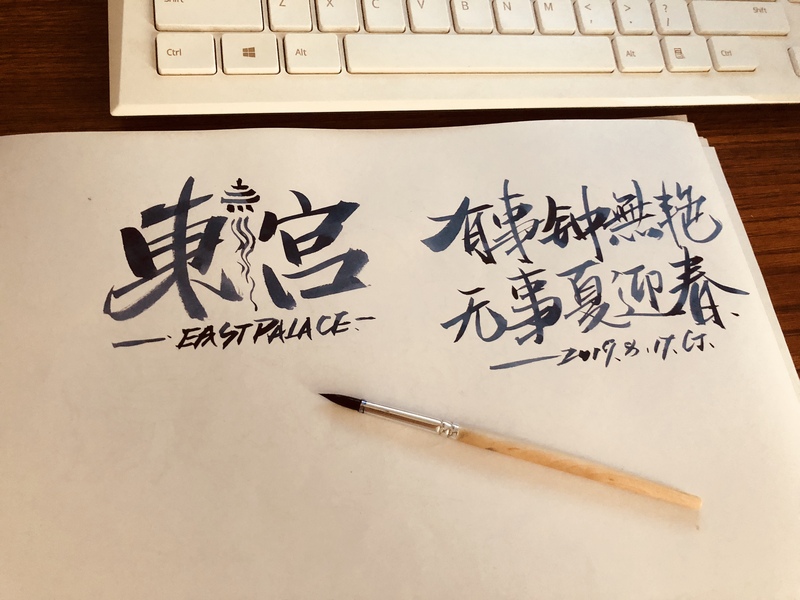 Shift Z X C V B N M < , > . ? / Shift
Ctrl Alt Alt Ctrl
東宮
EAST PALACE
有事钟無艳
无事夏迎春
2019.8.17.